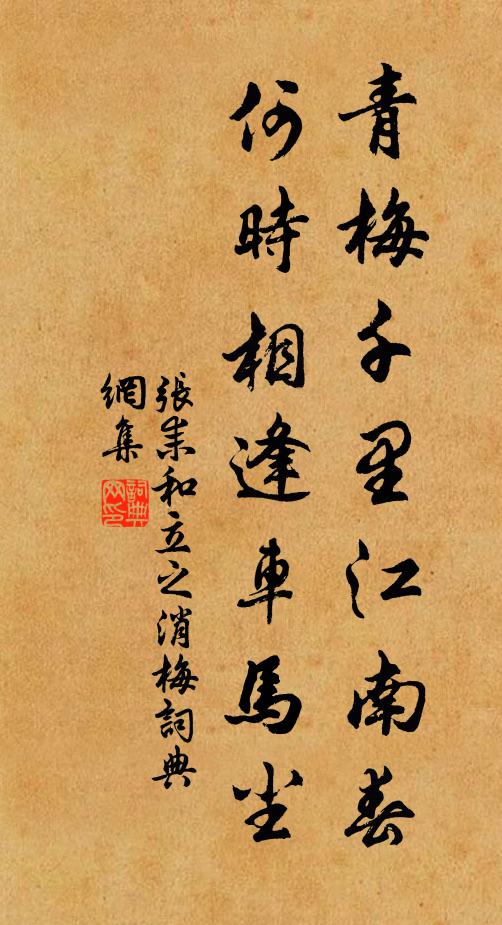 青梅千里江南春
何時相逢車馬尘
張耒和立之消梅詞典
網集
詞典
网印